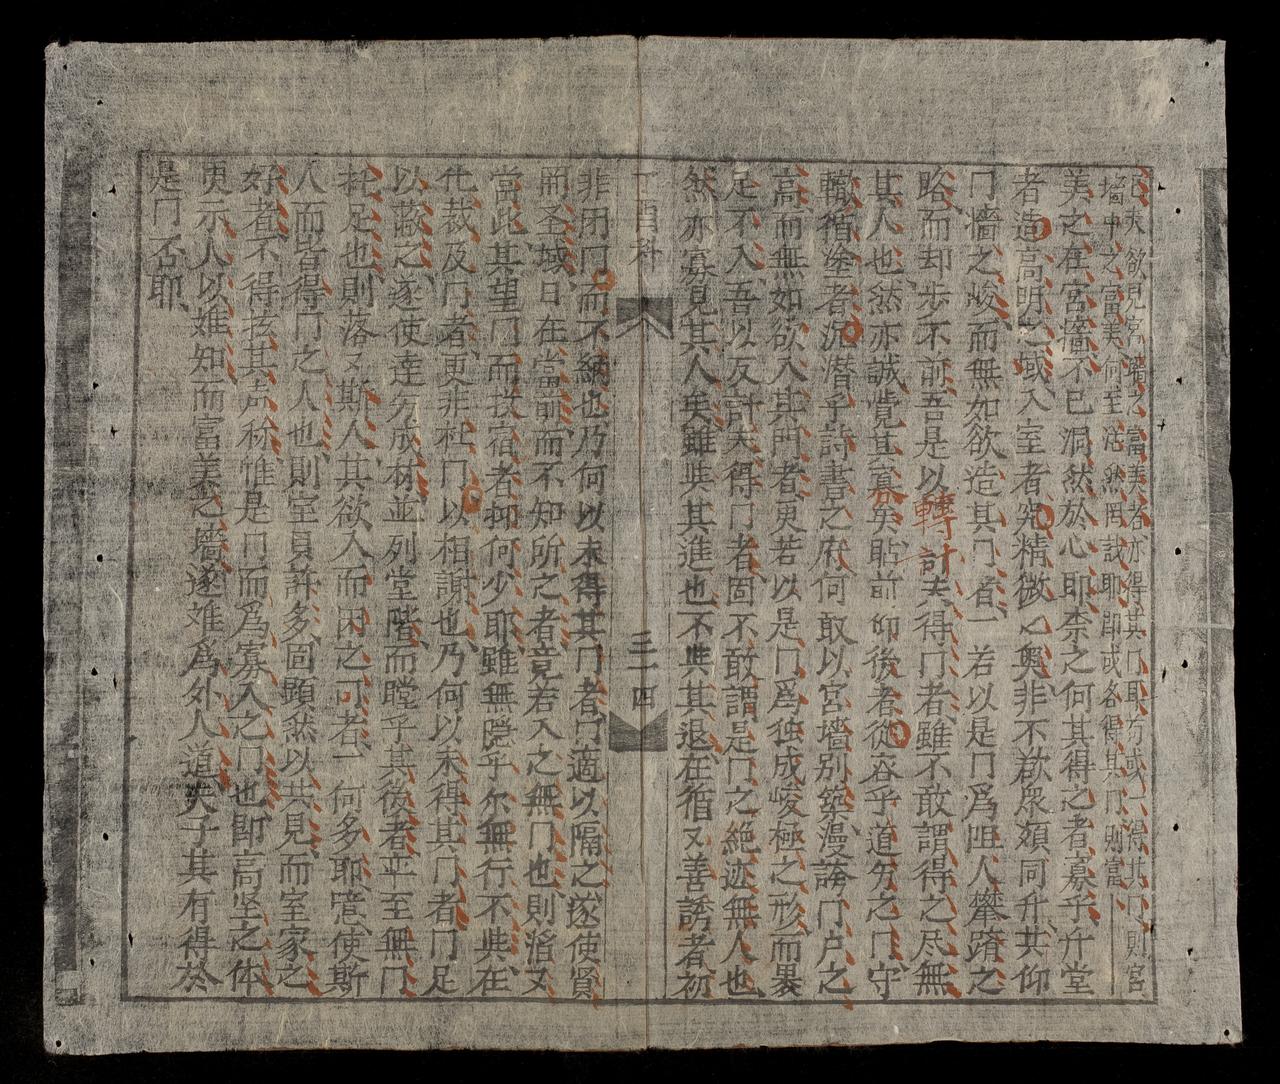 也夫欲見宮墻之富美者亦得其门耳有或不得其门則宮
墻中之富美何至茫然罔效耶即或各得其门則富
美之在宮墻不已洞然於心耶柰之何其得之者寡乎升堂
者造高明之域入室者究精微之奥非不欲眾類同升共仰
门墻之峻而無如欲造其门者一若以是门爲咀人攀躋之
略而却步不前吾是以轉計夫得门者雖不敢謂得之尽無
其人也然亦誠覺其寡矣瞻前仰後者從容乎道义之门守
轍循塗者沉潜乎詩書之府何取以宮墻别築漫誇门户之
高而無如欲入其門者更若以是门爲独成峻極之形而裹
足不入吾以反計夫得门者固不敢謂是门之绝迹無人也
然亦寡見其人矣雖與其進也不與其退在循又善誘者初
丁酉科
三一四
非闭门而不納也乃何以未得其门者门適以隔之遂使賢
而圣域日在當前而不知所之者竟若入之無门也則滔又
當此其望门而投宿者抑何少耶雖無隠乎尔無行不與在
化裁及门者更非杜门以相謝也乃何以未得其门者门足
以蔽之遂使達务成材並列堂階而瞠乎其後者卒至無门
托足也則落又斯人其欲入而困之可者一何多耶寔使斯
人而皆得门之人也則室員許多固顕然以共見而室家之
好者不得炫其声称惟是门而爲寡入之门也即高坚之体
更示人以难知而富美之墻遂难爲外人道夫子其有得於
是门否耶